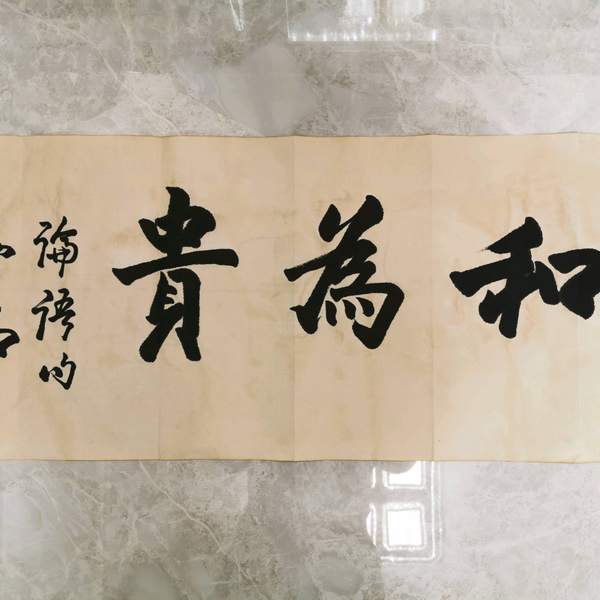 和為貴
論語句